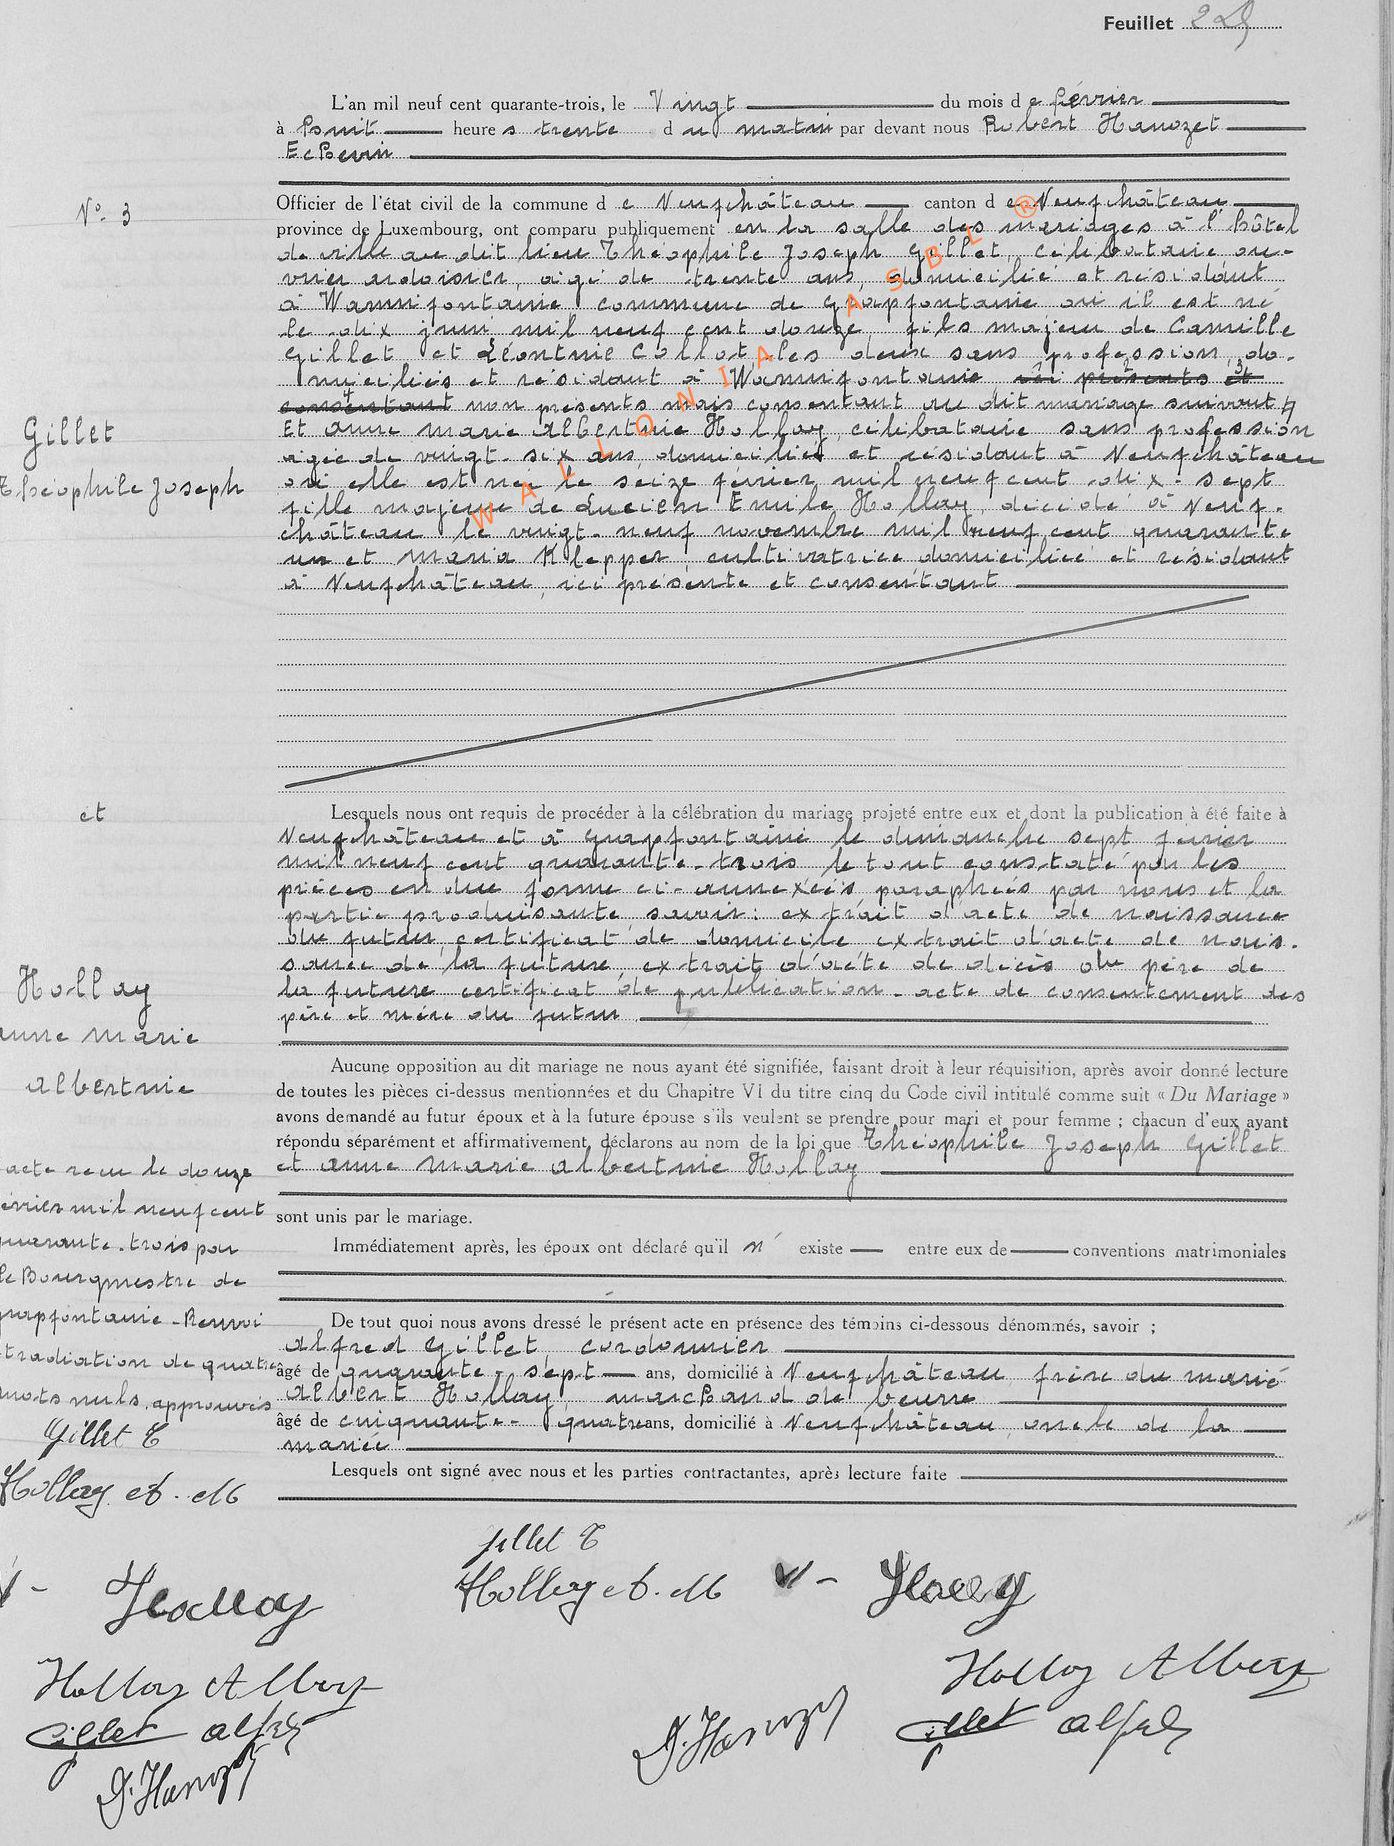 Feuillet
L'an mil neuf cent quarante-trois, le Vingt du mois de février
à huit heures trente du matin par devant nous Robert Hanozet
Echevin
N° 3
Officier de l'état civil de la commune de Neufchâteau canton de Neufchâteau
province de Luxembourg, ont comparu publiquement en la salle des mariages à l'hôtel
de ville au dit lieu Théophile Joseph Gillet, célibataire ou-
vrier ardoisier, agé de trente ans, domicilié et résidant
à Warmifontaine commune de Grapfontaine où il est né
le dix juin mil neuf cent douze, fils majeur de Camille
Gillet et Léontine Collot, les deux sans profession, do-
miciliés et résidant à Warmifontaine, ici présents et
consentant non présents mais consentant au dit mariage suivant
Et Anne Marie Albertine Hollay, célibataire sans profession
agée de vingt-six ans, domiciliée et résidant à Neufchâteau
où elle est née le seize février mil neuf cent dix-sept
fille majeure de Lucien Emile Hollay, décédé à Neuf-
château le vingt-neuf novembre mil neuf cent quarante
un et Maria Klepper, cultivatrice domiciliée et résidant
à Neufchâteau, ici présente et consentant
Gillet
Théophile Joseph
et
Hollay
Anne Marie
Albertine
Lesquels nous ont requis de procéder à la célébration du mariage projeté entre eux et dont la publication à été faite à
Neufchâteau et à Grapfontaine le dimanche sept février
mil neuf cent quarante-trois le tout constaté par les
pièces en due forme ci-annexées paraphées par nous et la
partie produisante savoir: extrait d'acte de naissance
du futur, certificat de domicile extrait d'acte de nais-
sance de la future, extrait d'acte de décès du père de
la future certificat de publication - acte de consentement des
père et mère du futur.
Aucune opposition au dit mariage ne nous ayant été signifiée, faisant droit à leur réquisition, après avoir donné lecture
de toutes les pièces ci-dessus mentionnées et du Chapitre VI du titre cinq du Code civil intitulé comme suit « Du Mariage »
avons demandé au futur époux et à la future épouse s'ils veulent se prendre pour mari et pour femme ; chacun d'eux ayant
répondu séparément et affirmativement, déclarons au nom de la loi que Théophile Joseph Gillet
et Anne Marie Albertine Hollay
sont unis par le mariage.
Immédiatement après, les époux ont déclaré qu'il n' existe entre eux de conventions matrimoniales
De tout quoi nous avons dressé le présent acte en présence des témoins ci-dessous dénommés, savoir ;
Alfred Gillet, cordonnier
âgé de quarante-sept ans, domicilié à Neufchâteau frère du marié
Albert Hollay, marchand de beurre
âgé de cinquante-quatre ans, domicilié à Neufchâteau, oncle de la
mariée
Lesquels ont signé avec nous et les parties contractantes, après lecture faite
acte reçu le douze
février mil neuf cent
quarante-trois par
le Bourgmestre de
Grapfontaine - Renvoi
et radiation de quatre
mots nuls approuvés
Gillet T
Hollay A. M
Gillet T
Hollay A. M
Hollay
Hollay Albert
Gillet Alfred
Hollay Albert
Gillet Alfred
WALLONIA ASBL ®